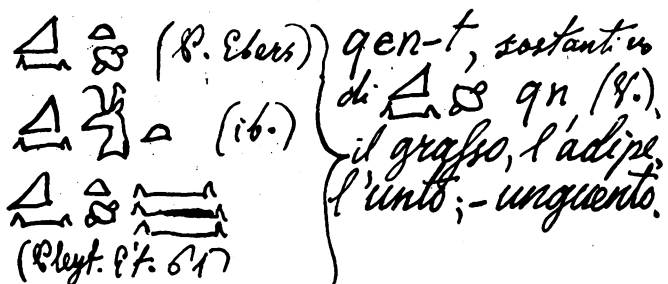 (P. Ebers)
(ib.)
(Pleyt. Ét. 61)
qen-t, sostantivo
di qn (V.),
il grasso, l'adipe,
l'unto; - unguento.